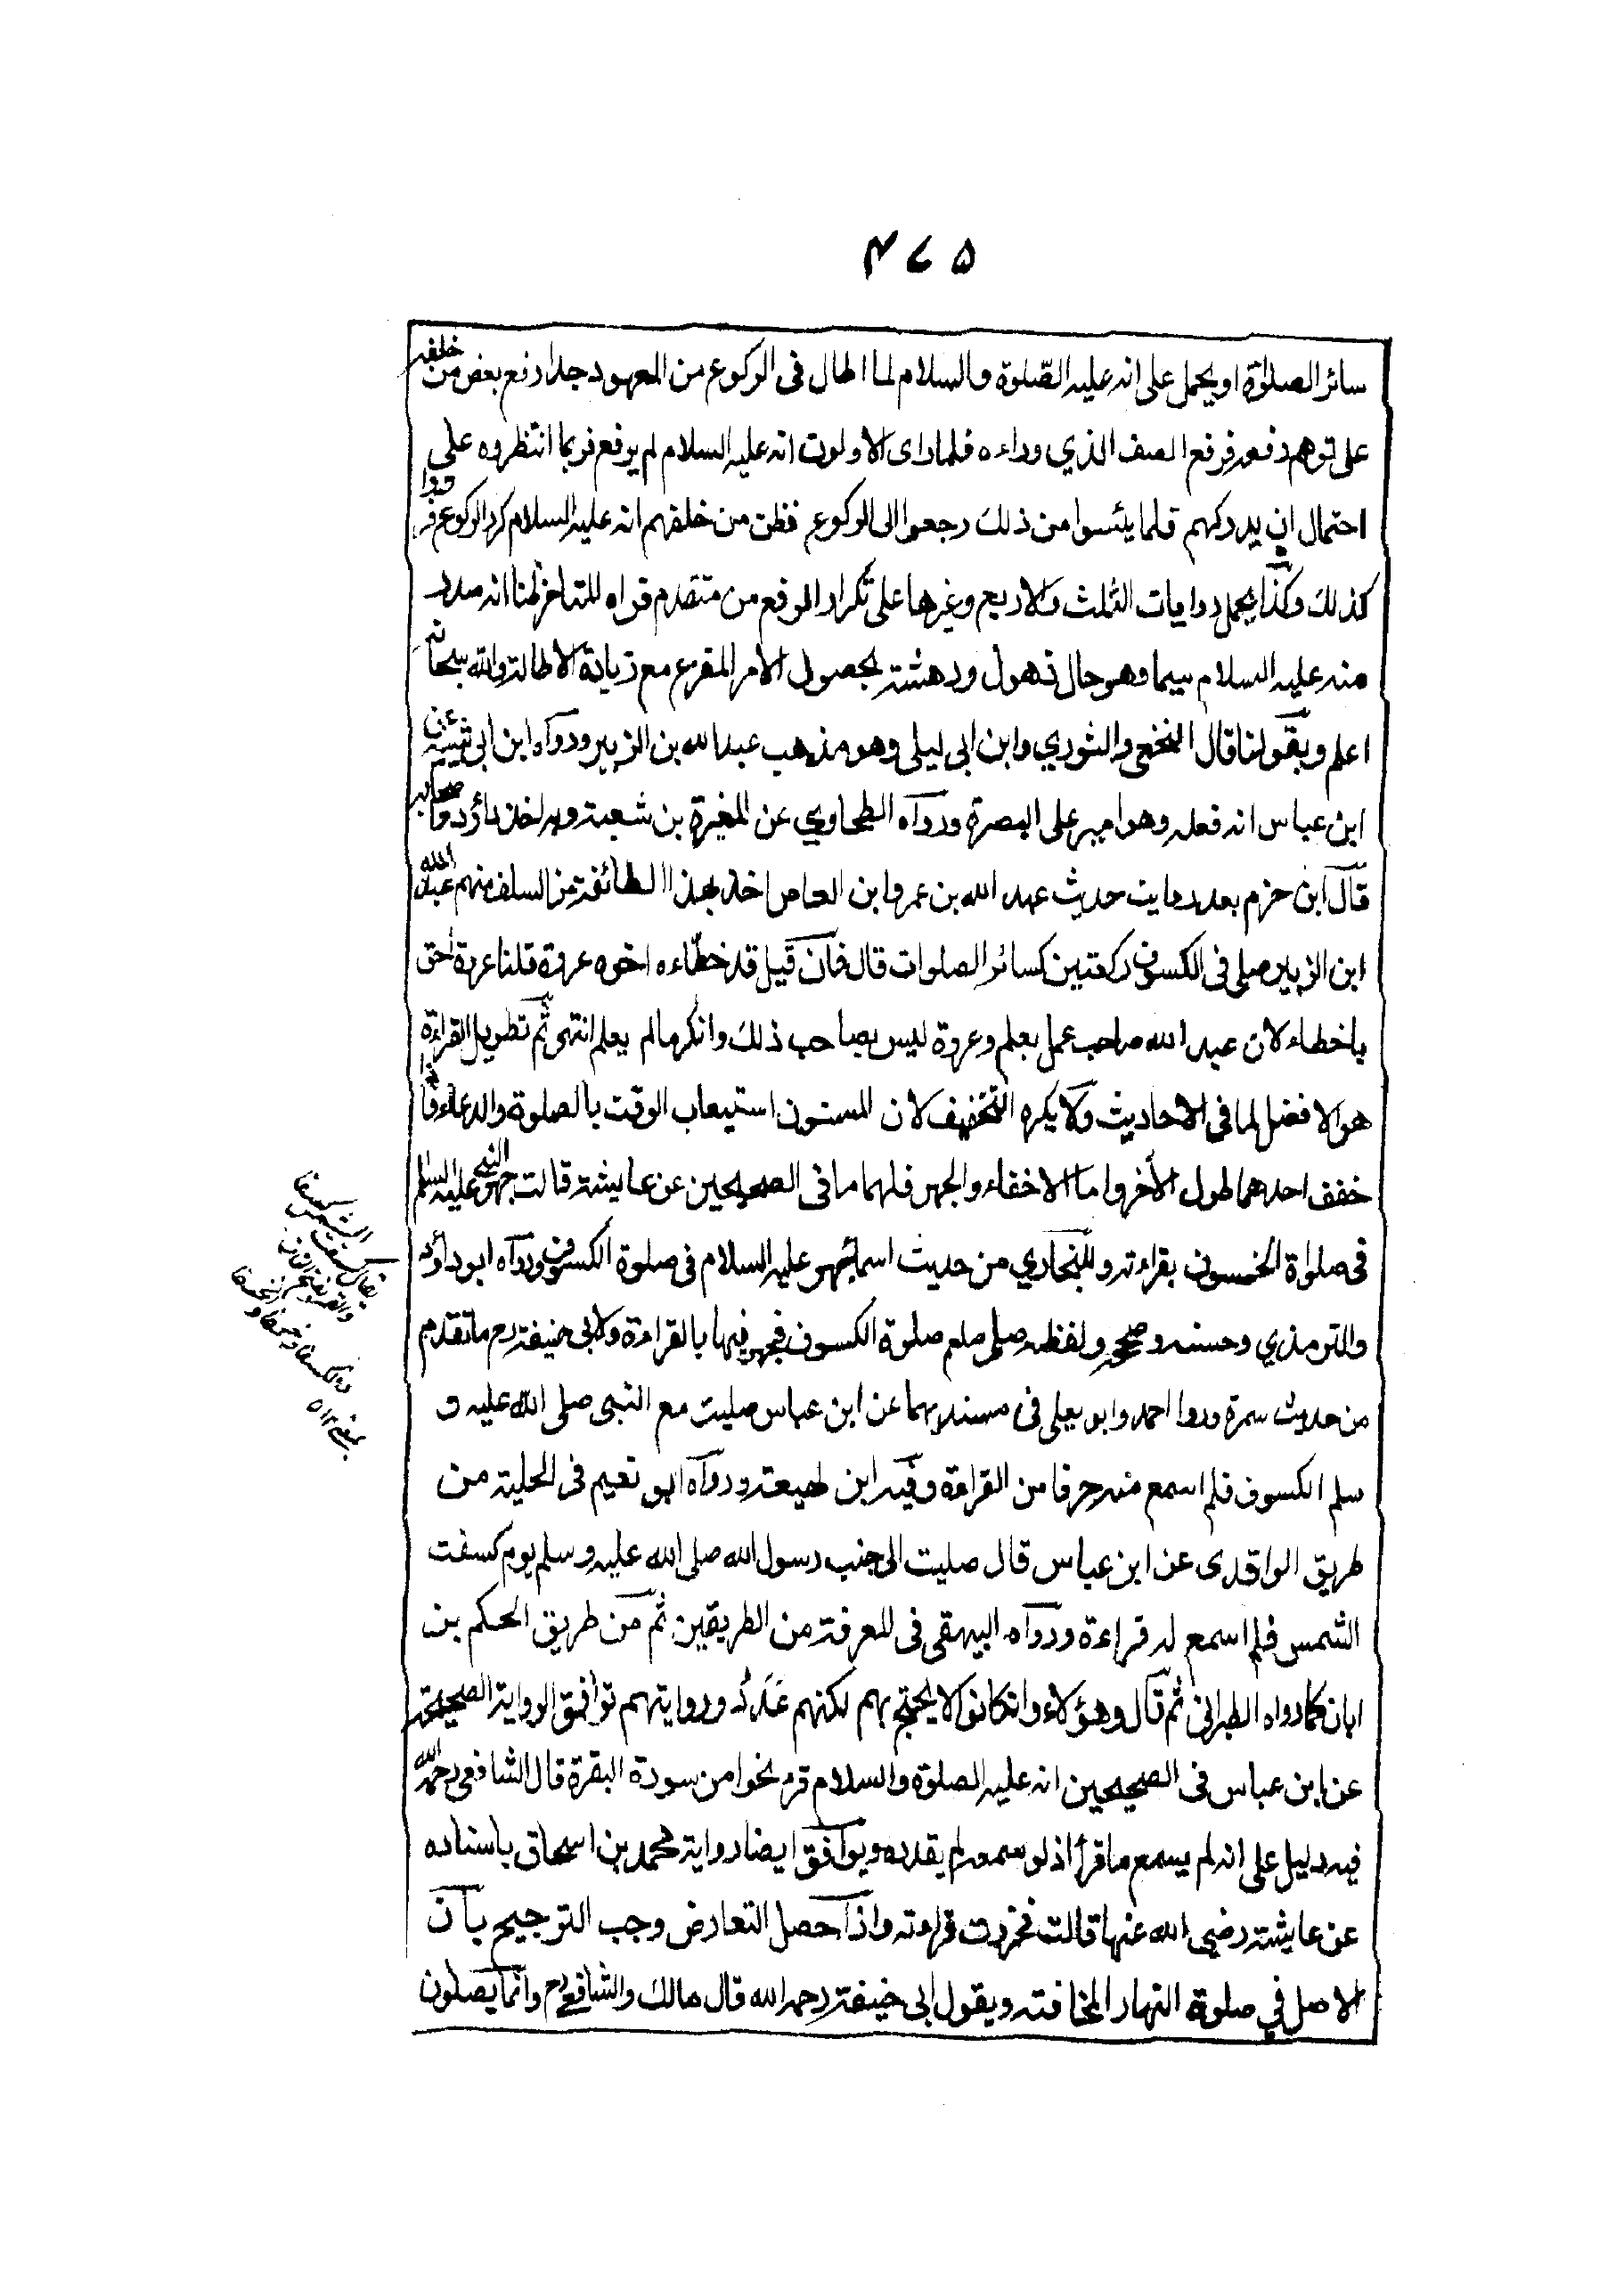 ۴۷۵
سائر الصلوٰة او يحمل على انه عليه الصّلوة والسلام لما اطال فى الركوع من المعهود جدا رفع بعض من خلفه
على توهم رفعه فرفع الصف الذي وراءه فلما راى الاولون انه عليه السلام لم يرفع فربما انتظروه على
احتمال ان يدركهم فلما يئسوا من ذلك رجعوا الى الركوع فظن من خلفهم انه عليه السلام كرر الركوع فرووا
كذلك وكذا يحمل روايات الثلث والاربع وغيرها على تكرار الرفع من متقدم فراه المتاخر ظنا انه صدر
منه عليه السلام سيما وهو حال ذهول ودهشة بحصول الامر المفزع مع زيادة الاطالة والله سبحانه
اعلم وبقولنا قال النخعي والثوري وابن ابى ليلى وهو مذهب عبدالله بن الزبير ورواه ابن ابى شيبة عن
ابن عباس انه فعله وهو امير على البصرة ورواه الطحاوي عن المغيرة بن شعبة وبه اخذ داؤد واصحابه
قال ابن حزم بعد روايت حديث عبد الله بن عمرو ابن العاص اخذ بهذا الطائفة من السلف منهم عبد الله
ابن الزبير صلى فى الكسوف ركعتين كسائر الصلوات قال فان قيل قد خطّاءه اخوه عروة قلنا عروة احق
باخطاء لان عبد الله صاحب عمل بعلم وعروة ليس بصاحب ذلك وانكر مالم يعلم انتهى ثم تطويل القراءة
هو الافضل لما فى الاحاديث ولا يكره التخفيف لان المسنون استيعاب الوقت بالصلوة والدعاء فاذا
خفف احدهما طول الأخر واما الاخفاء والجهر فلهما ما فى الصحيحين عن عايشة قالت جهر النبي عليه السلم
فى صلواة الخسوف بقراءته وللبخاري من حديث اسما جهر عليه السلام فى صلوة الكسوف ورواه ابو داؤد
والترمذي وحسنه وصححه ولفظه صلى صلعم صلوة الكسوف فجهر فيها بالقراءة ولابى حنيفة رح ما تقدم
من حديث سمرة وروا احمد وابو يعلى فى مسنديهما عن ابن عباس صليت مع النبى صلى الله عليه و
سلم الكسوف فلم اسمع منه حرفا من القراءة وفيه ابن لهيعة ورواه ابو نعيم فى الحلية من
طريق الواقدى عن ابن عباس قال صليت الى جنب رسول الله صلى الله عليه وسلم يوم كسفت
الشمس فلم اسمع له قراءة ورواه البيهقى فى المعرفة من الطريقين ثم من طريق الحكم بن
ابان كما رواه الطبرانى ثم قال وهؤلاء وان كانوا لا يحتج بهم لكنهم عَدَدٌ وروايتهم توافق الرواية الصحيحة
عن ابن عباس فى الصحيحين انه عليه الصلوة والسلام قرء نحوا من سورة البقرة قال الشافعى رحمه الله
فيه دليل على انه لم يسمع ما قرأ اذ لو سمعه لم يقدره ويوافق ايضا رواية محمد بن اسحاق باسناده
عن عايشة رضى الله عنها قالت فحزرت قراءته واذا حصل التعارض وجب الترجيح بان
الاصل في صلوة النهار المخافته وبقول ابى حنيفة رحمه الله قال مالك والشافعى رح وانما يصلون